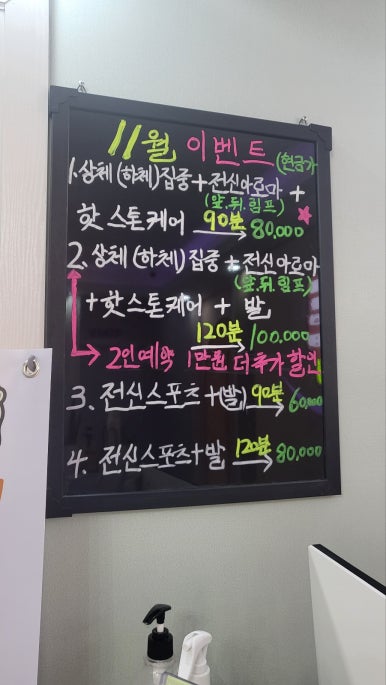 11월 이벤트 (현금가)
1. 상체 (하체) 집중 + 전신아로마 +
(앞.뒤.림프)
핫스톤케어 90분 → 80,000
2. 상체 (하체) 집중 + 전신아로마
(앞.뒤.림프)
+ 핫스톤케어 + 발
120분 → 100,000
2인예약 1만원 더 추가 할인
3. 전신스포츠 + (발) 90분 → 60,000
4. 전신스포츠 + 발 120분 → 80,000